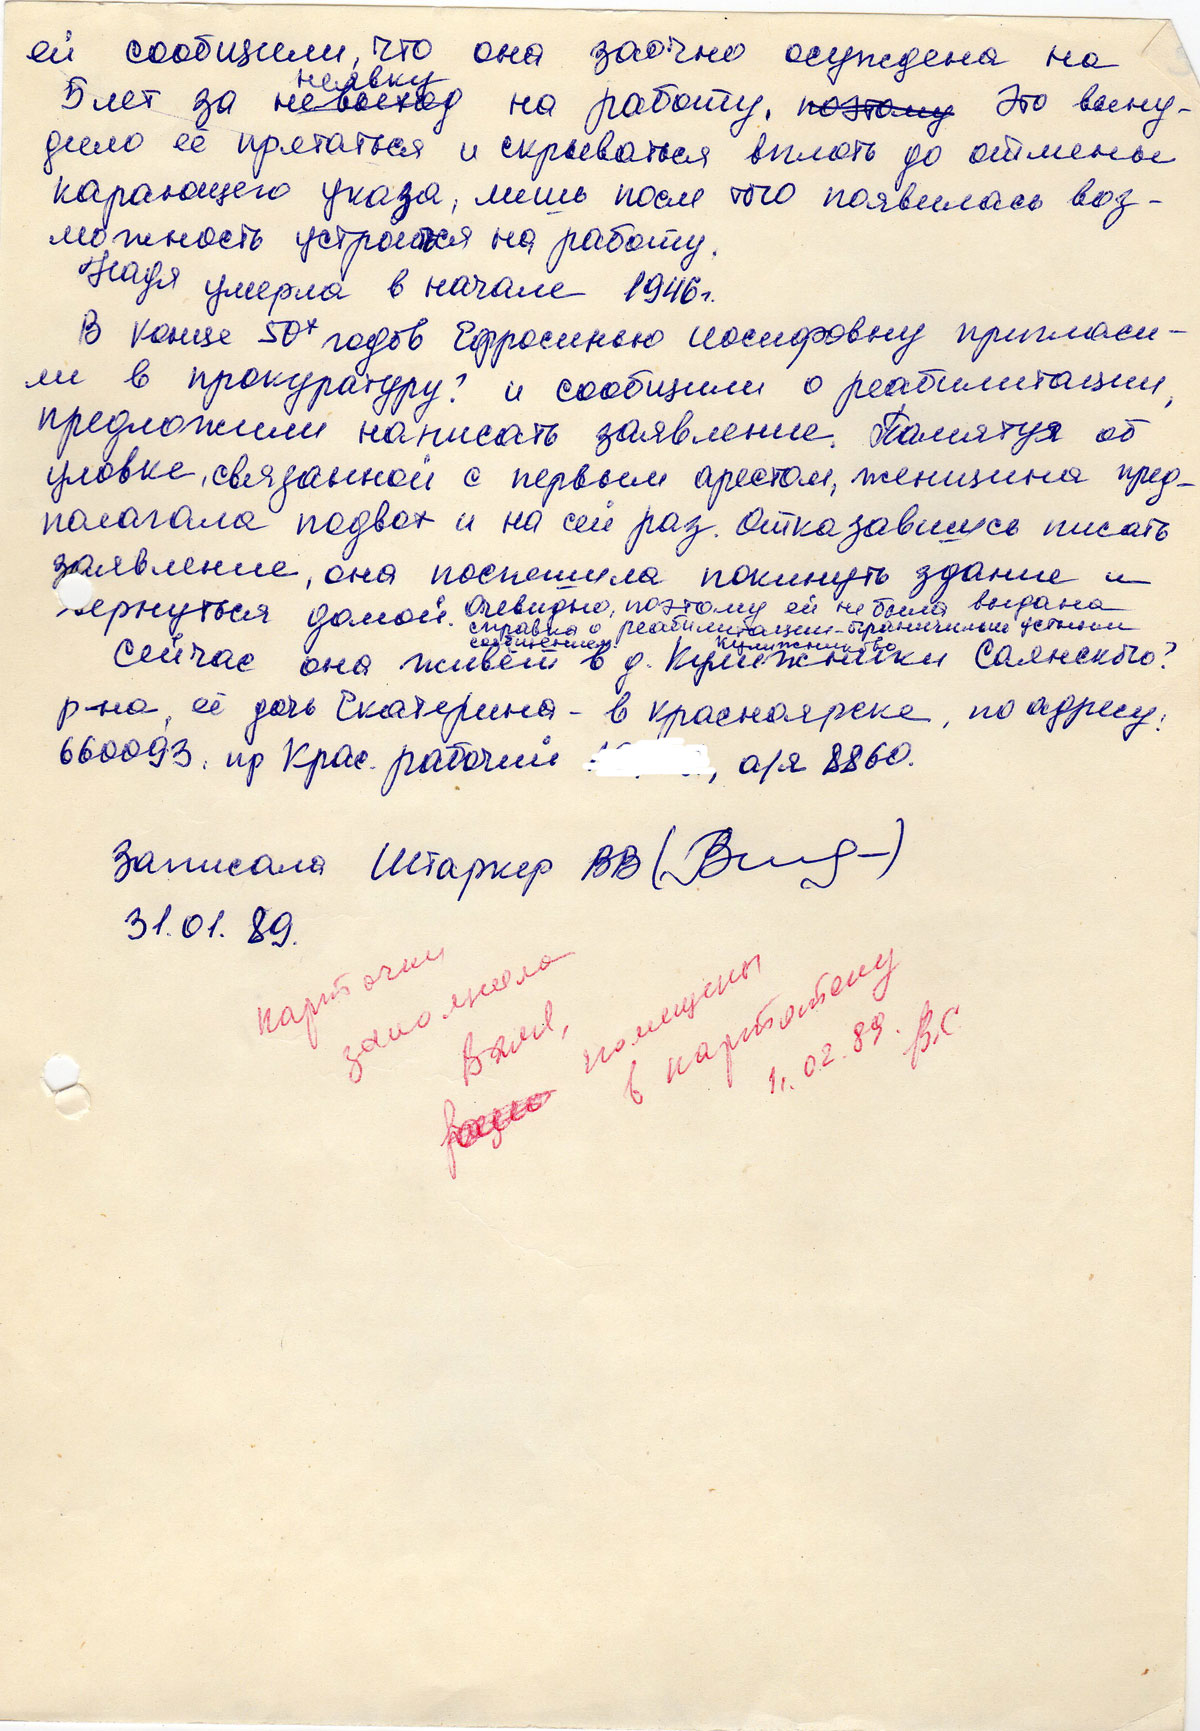 ей сообщили, что она заочно осуждена на
неявку
5 лет за невыход на работу, поэтому Это выну-
дило её прятаться и скрываться вплоть до отмены
карающего указа, лишь после того появилась воз-
можность устроиться на работу.
Надя умерла в начале 1946 г.
В конце 50х годов Ефросинью Иосифовну пригласи-
ли в прокуратуру? и сообщили о реабилитации,
предложили написать заявление. Памятуя об
уловке, связанной с первым арестом, женщина пред-
полагала подвох и на сей раз. Отказавшись писать
заявление, она поспешила покинуть здание и
вернуться домой. Очевидно, поэтому ей не была выдана
справка о реабилитации - ограничились устным
сообщением.
Кулижниково
Сейчас она живёт в д. Кулижники Саянского?
р-на, её дочь Екатерина - в Красноярске, по адресу:
660093, пр Крас. рабочий , а/я 8860.
Записала Штаркер ВВ ( )
31.01.89.
карточки
заполнила
Валя,
помещены
в картотеку
1.02.89. В.С